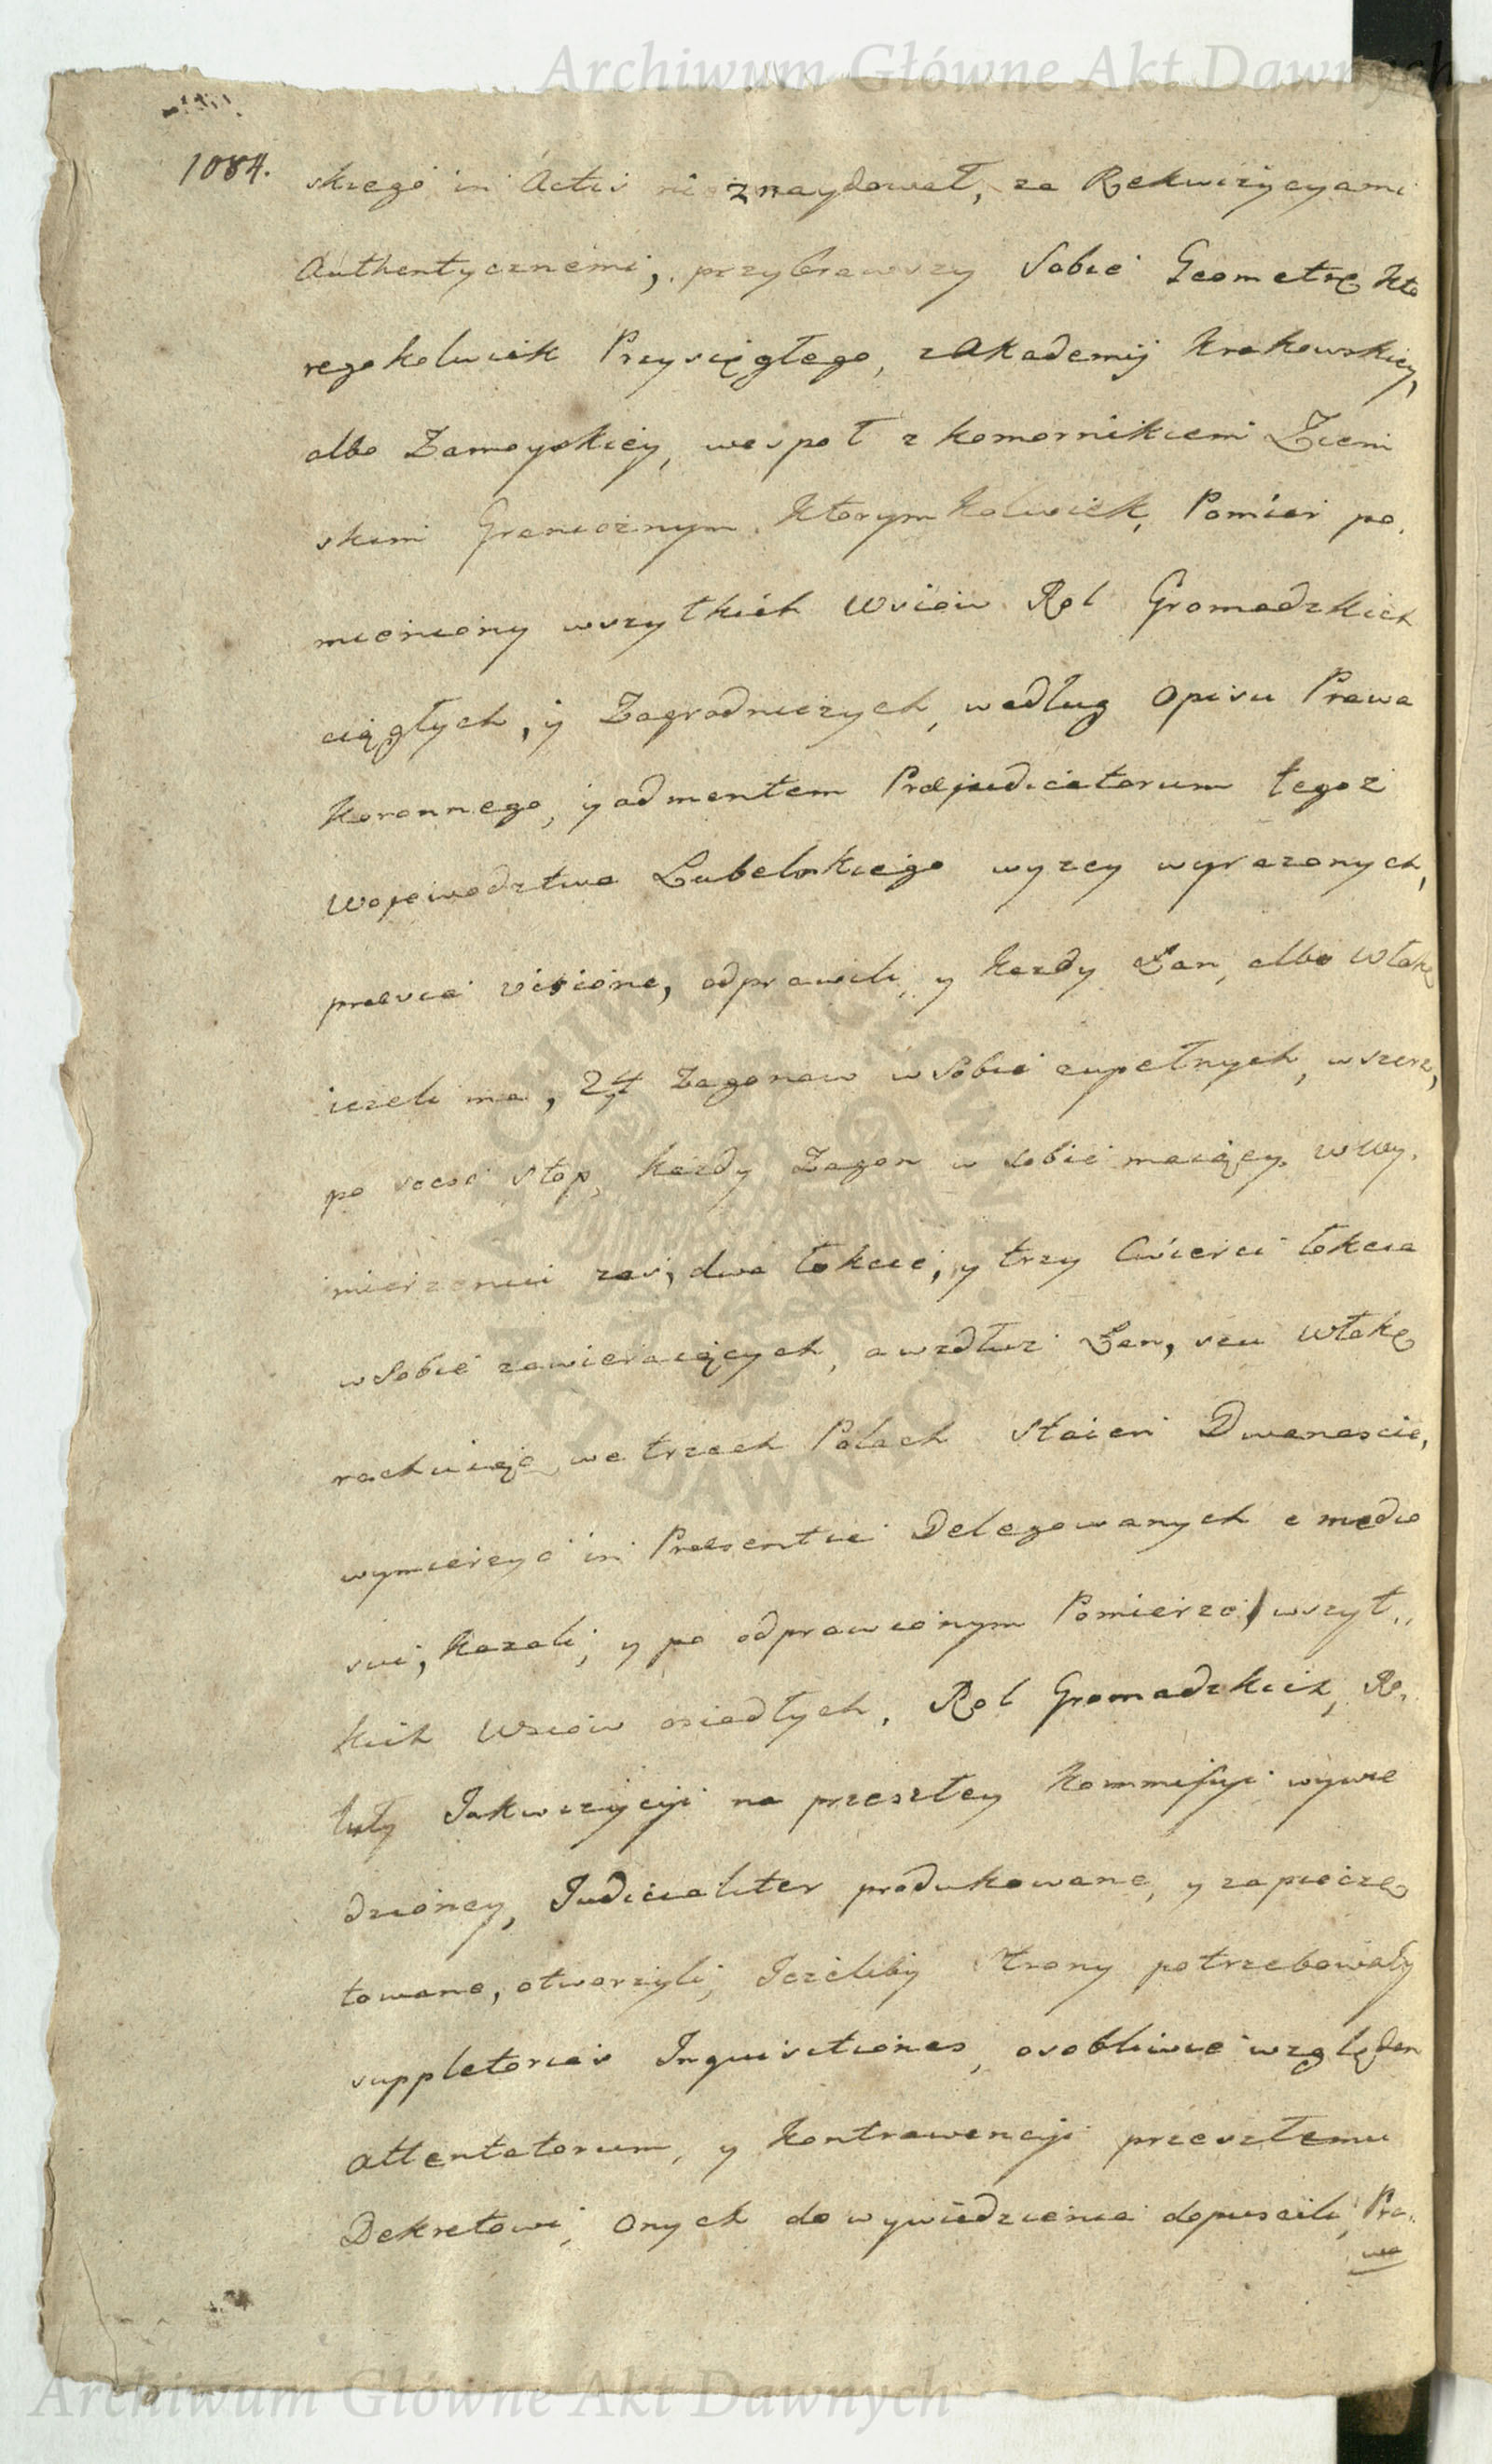 Archiwum Główne Akt Dawnych
1084.
skiego in Actis nie znaydował, za Rekwizycyami
Authentycznemi, przybrawszy Sobie Geometrę Kto
regokolwiek Przysięgłego, z Akademij Krakowskiey,
albo Zamoyskiey, wespoł z Komornikiem Ziem
skim Granicznym Ktorymkolwiek, Pomiar po.
mieniony wszytkich Wsiow Rol Gromadzkich
ciągłych, y Zagrodniczych, według Opisu Prawa
Koronnego, y ad mentem Præjudicatorum tegoż
Wojewodztwa Lubelskiego wyzey wyrazonych,
prævia visione, odprawili, y kazdy Łan, albo Włokę
iezeli ma, 24 Zagonow w Sobie zupełnych, wszerz,
po sześć stop, kazdy Zagon w sobie maiący, w wy.
mierzeniu zas, dwa łokcie, y trzy Cwierci łokcia
w Sobie zawieraiących, a wzdłuz Łan, seu Włokę
rachuiąc, we trzech Polach Staien Dwanascie,
wymierzyć in Præsentia Delegowanych e medio
sui, kazali, y po odprawionym Pomierze, wszyt..
kich Wsiow osiadłych, Rol Gromadzkich, Ro.
tuły Inkwizycyi na przeszłey Kommissyi wywie
dzioney, Judicialiter produkowane, y zapieczę
towane, otworzyli, Jezeliby Strony potrzebowały
suppletorias Inquisitiones, osobliwie względem
attentatorum, y Kontrawencyi przeszłemu
Dekretowi, Onych do wywiedzienia dopuscili, Pra..
wa
ARCHIWUM GŁÓWNE AKT DAWNYCH
Archiwum Główne Akt Dawnych